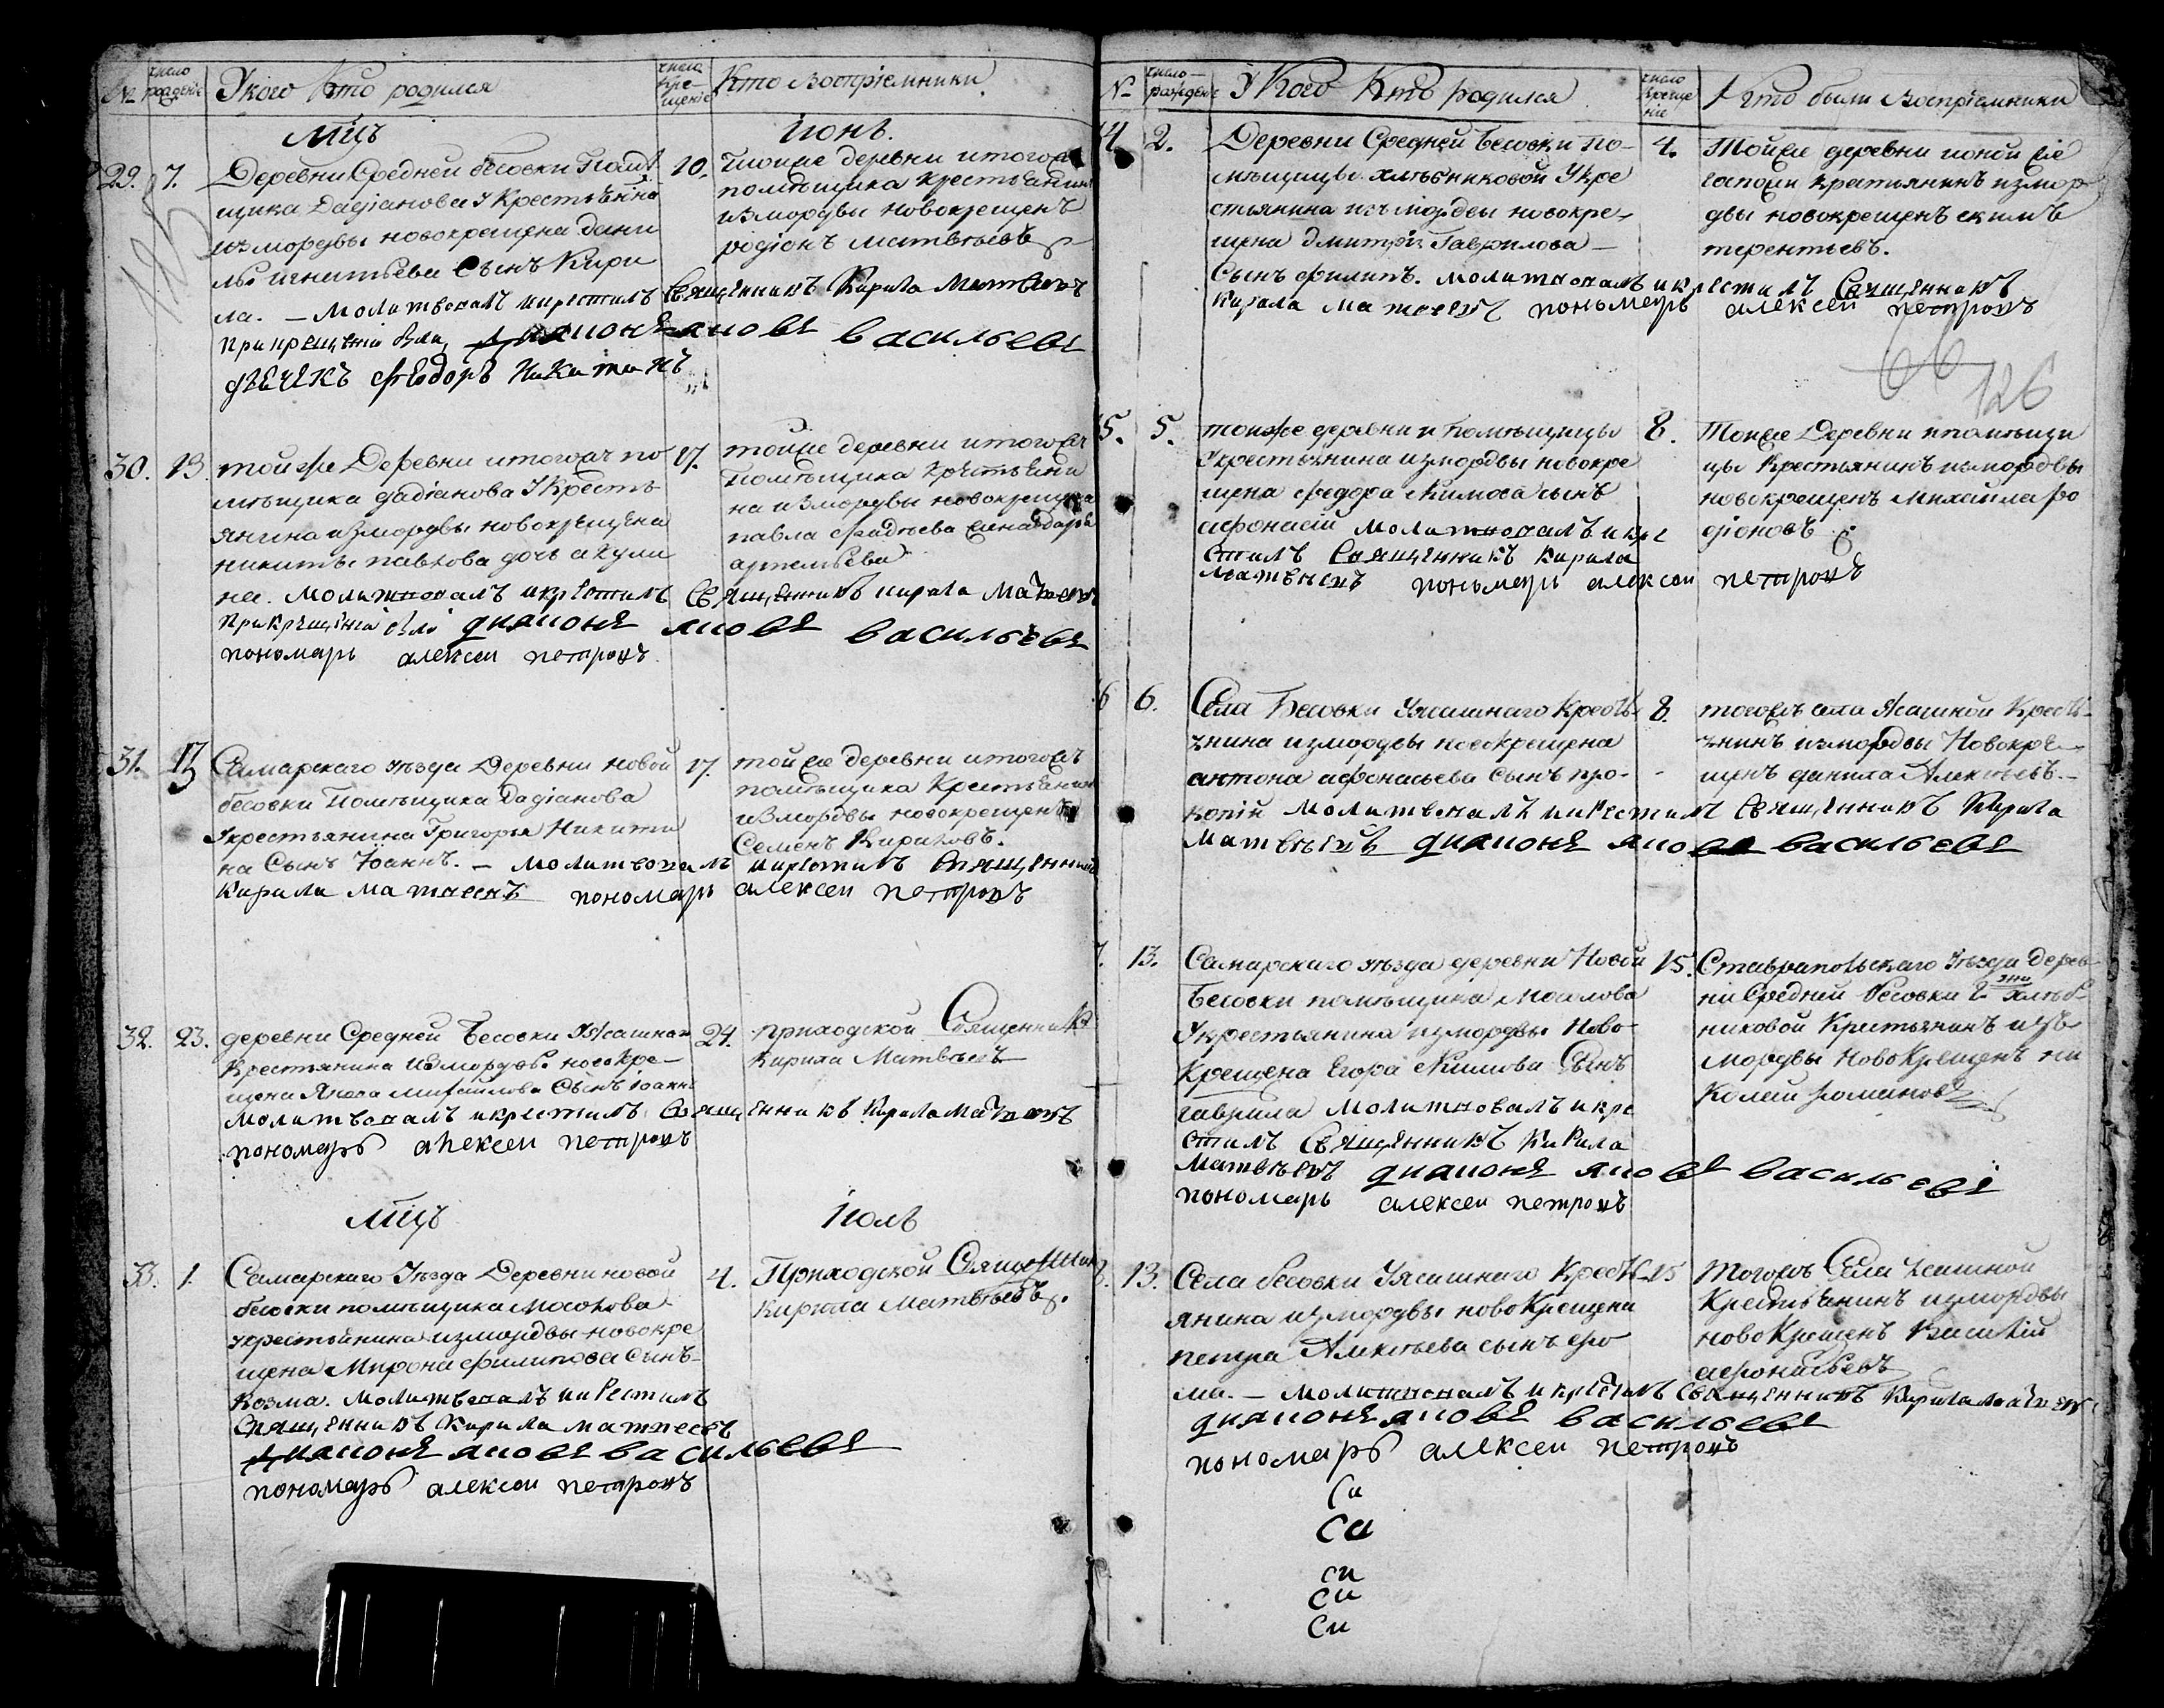 №
число рожденіе
У кого кто родился
число кре-щеніе
Кто воспріемники
мцъ
іюнь.
29.
7.
Деревни Средней бесовки Помѣ
щика Дадіанова У крестьянина
измордвы новокрещена Дани
лы игнатьева Сынъ Кири
ла. — молитвовалъ икрестилъ Священникъ Кирила Матвеевъ
при крещеніи были дияконъ яковъ васильевъ
дьячекъ Феодоръ Никитинъ
10.
тойже деревни итогожъ
помѣщика крестьянинъ
измордвы новокрещенъ
родіонъ матвѣевъ
30.
13.
тойже Деревни итогожъ по
мѣщика дадіанова У кресть
янина измордвы новокрещена
никиты павлова дочь акули
на. молитвовалъ икрестилъ Священникъ кирила Матвеевъ
при крещеніи были дияконъ яковъ васильевъ
пономарь алексеи петровъ
17.
тойже деревни итогожъ
Помѣщика крестьяни
на измордвы новокрещена
павла фадѣева жена дарья
артемьева
31.
13
Самарскаго уѣзда Деревни новой
бесовки Помѣщика Дадіанова
Укрестьянина Григорья Никити
на Сынъ Іоаннъ. — молитвовалъ икрестилъ Священникъ
Кирила матвеевъ пономарь алексеи петровъ
17.
тойже деревни итогожъ
помѣщика Крестьянинъ
измордвы новокрещенъ
Семенъ Кириловъ.
32.
23.
деревни Средней Бесовки Уясашнаго
Крестянина Измордвы новокре-
щена Якова михайлова Сынъ іоаннъ
молитвовалъ икрестилъ Священникъ Кирила Матвеевъ
пономарь алексеи петровъ
24.
приходской Священникъ
Кирила Матвѣевъ
мцъ
іюль
33.
1.
Самарскаго Уѣзда Деревни новой
бесовки помѣщика Мосолова
укрестьянина измордвы новокре
щена Мирона филипова сынъ
козма. молитвовалъ икрестилъ
Священникъ Кирила матвеевъ
дияконъ яковъ васильевъ
пономарь алексеи петровъ
4.
Приходской Священникъ
Кирила Матвѣевъ.
№
число рожденіе
У Кого Кто родился
число креще ніе
Кто были Воспріемники
4.
2.
Деревни Средней Бесовки по-
мѣщицы хлѣбниковой Укре
стьянина измордвы новокре-
щена дмитрія Гаврилова
Сынъ филипъ. молитвовалъ икрестилъ Священникъ
Кирала матвеевъ пономарь алексеи петровъ
4.
Тойже деревни
госпожи крестьянинъ измор
двы новокрещенъ екимъ
терентьевъ.
126
5.
5.
тоиже деревни и помѣщицы
Укрестьянина измордвы новокре
щена федора Акимова сынъ
афонасій молитвовалъ икре
стилъ Священникъ Кирила
Матвѣевъ пономарь алексеи петровъ
8.
Тоиже Деревни ипомѣщи
цы Крестьянинъ измордвы
новокрещенъ Михайла ро
діоновъ
6
6.
Села Бесовки Уясашнаго Кресть-
янина измордвы новокрещена
антона афонасьева Сынъ про-
копій молитвовалъ икрестилъ Священникъ Кирила
Матвѣевъ дияконъ яковъ васильевъ
8.
тогожъ села Ясашной Кресть-
янинъ измордвы Новокре-
щенъ данила Алексѣевъ.
7.
13.
Самарскаго уѣзда деревни Новой
Бесовки помѣщика Мосолова
Укрестьянина измордвы Ново-
Крещена Егора Акимова Сынъ
гаврила молитвовалъ икре
стилъ Священникъ Кирила
Матвѣевъ дияконъ яковъ васильевъ
пономарь алексеи петровъ
15.
Ставропольскаго Уѣзда Дерев
ни Средней бесовки г-жи Хлѣб-
никовой Крестьянинъ изъ
Мордвы НовоКрещенъ ни
колай романовъ
8.
13.
Села бесовки Уясашнаго Кресть-
янина измордвы новоКрещена
петра Алексѣева сынъ фо
ма. — молитвовалъ икрестилъ Священникъ Кирила Матвеевъ
дияконъ яковъ васильевъ
пономарь алексеи петровъ
15
Тогожъ Села Ясашной
Крестьянинъ измордвы
новоКрещенъ Василій
афонасьевъ
Си
Си
Си
Си
Си